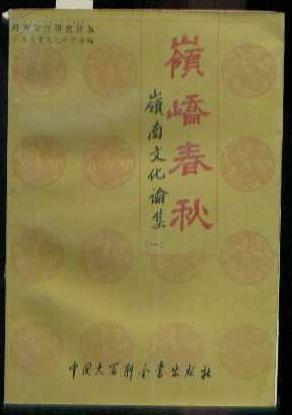 嶺嶠春秋
嶺南文化論集
(一)
中国大百科全書出版社